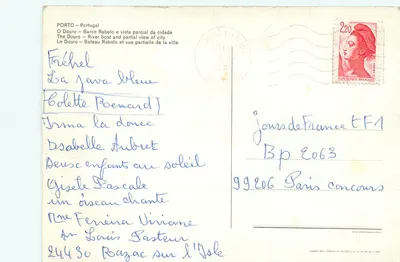 PORTO – Portugal
O Douro – Barco Rebelo e vista parcial da cidade
The Douro – River boat and partial view of city
Le Douro – Bateau Rebelo et vue partielle de la ville
Fréhel
La Java bleue
Colette Renard
Irma la douce
Isabelle Aubret
Deux enfants au soleil
Gisèle Pascale
un oiseau chante
Mme Ferreira Viviane
Louis Pasteur
24430 Razac sur l'Isle
2,20
Jours de France TF1
Bp 2063
99206 Paris concours